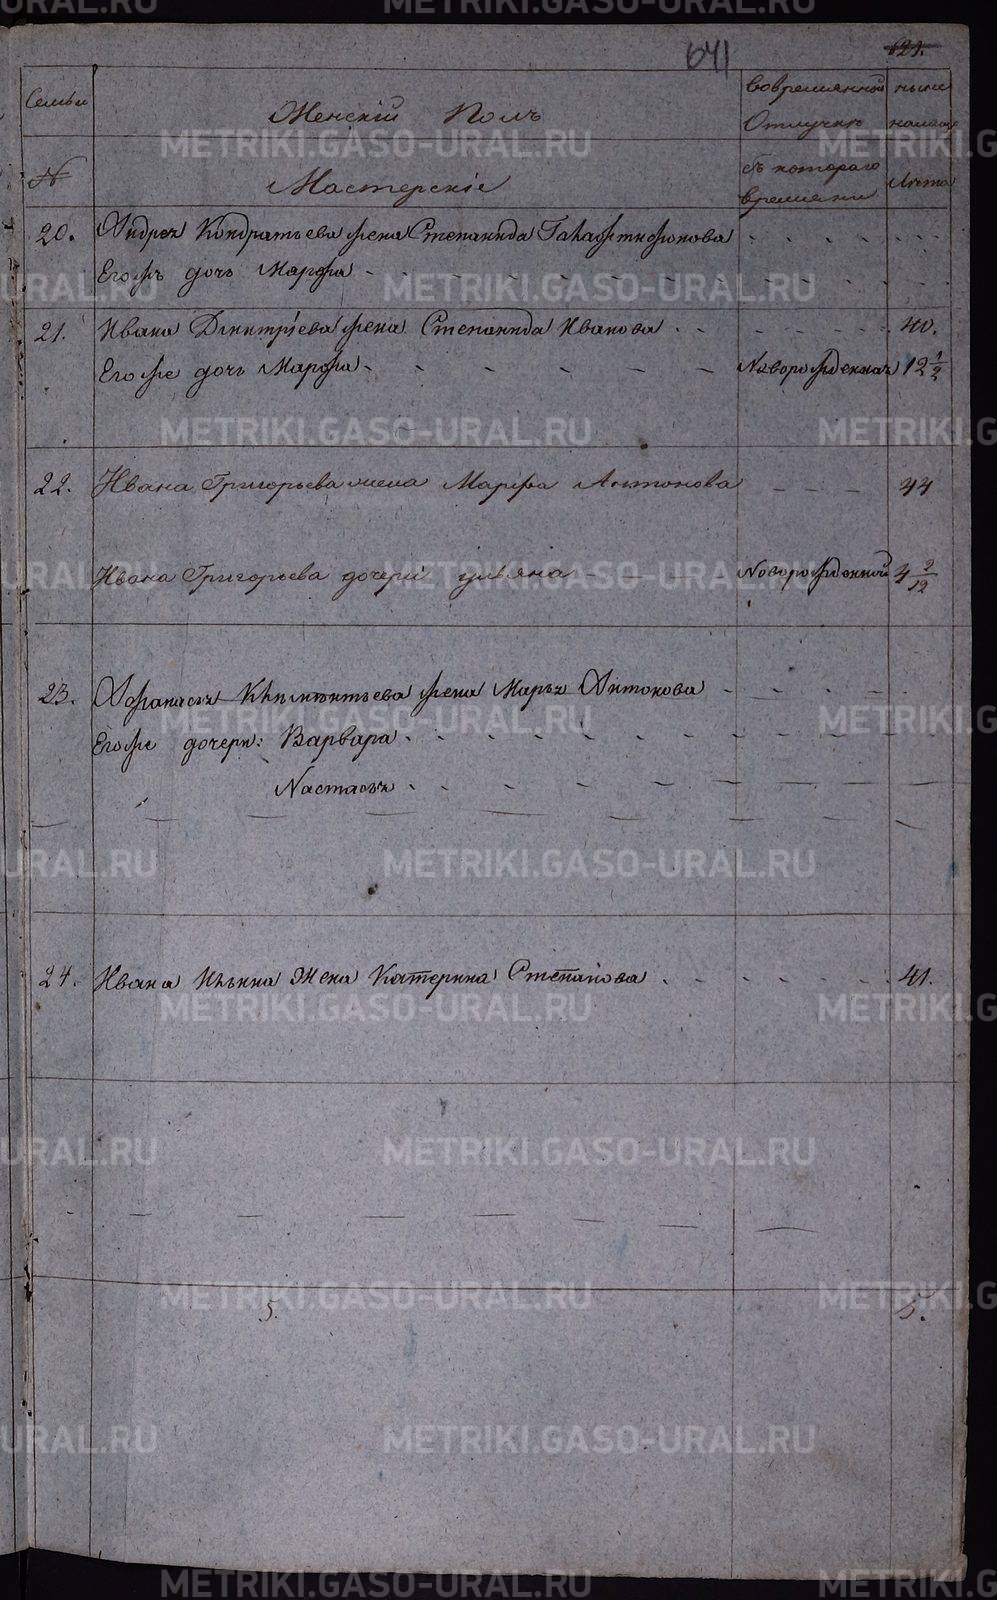 641
621.
Семьи Женскій Полъ Вовремянной Отлучке ныне налицо
№ Мастерскіе съ котораго времяни Лета
20. Андрея Кондратьева жена Степанида
Егожъ дочь Марфа
21. Ивана Дмитріева жена Степанида Иванова 40.
Егоже дочь Марфа Новорожденная 12 1/2
22. Ивана Григорьева жена Марфа Антонова 44
Ивана Григорьева дочери ульяна Новорожденной 4 2/12
23. Афанасья Климентьева жена Марья Антонова
Егоже дочери: Варвара
Настасья
24. Ивана Ильина Жена Катерина Степанова 41.
5. 5.
METRIKI.GASO-URAL.RU